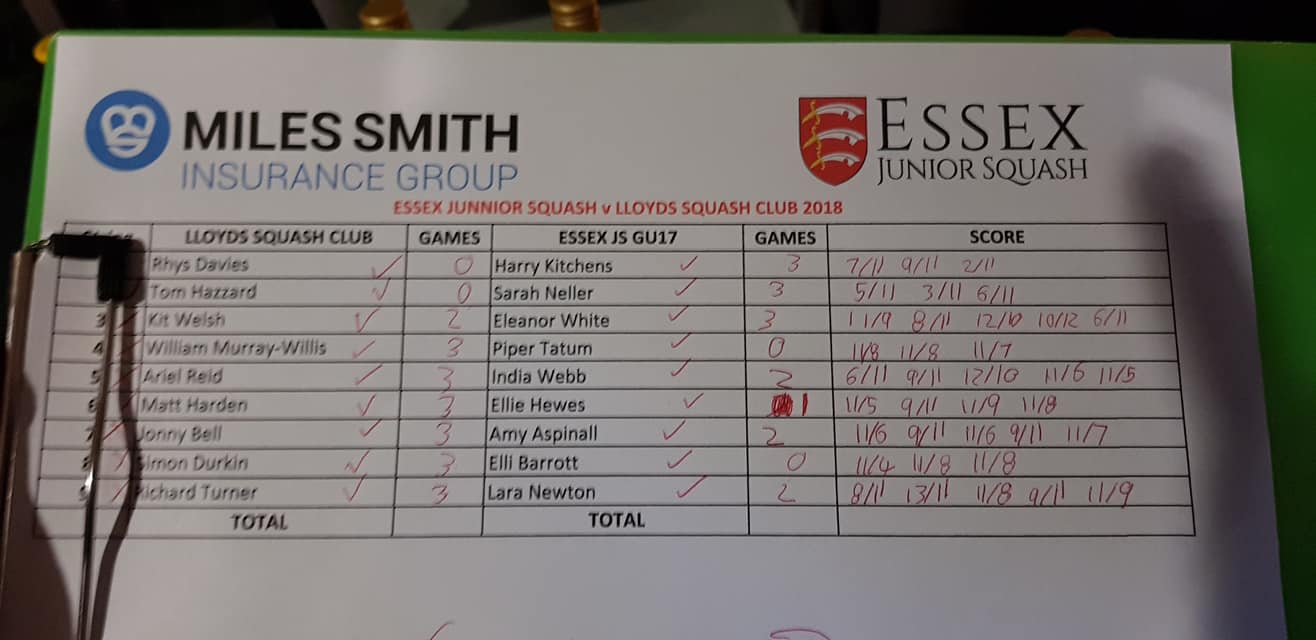 MILES SMITH
INSURANCE GROUP
ESSEX
JUNIOR SQUASH
ESSEX JUNNIOR SQUASH v LLOYDS SQUASH CLUB 2018
LLOYDS SQUASH CLUB GAMES ESSEX JS GU17 GAMES SCORE
Rhys Davies ✓ 0 Harry Kitchens ✓ 3 7/11 9/11 2/11
Tom Hazzard ✓ 0 Sarah Neller ✓ 3 5/11 3/11 6/11
3 Kit Welsh ✓ 2 Eleanor White ✓ 3 11/9 8/11 12/10 10/12 6/11
4 William Murray-Willis ✓ 3 Piper Tatum ✓ 0 11/8 11/8 11/7
5 Ariel Reid ✓ 3 India Webb ✓ 2 6/11 9/11 12/10 11/6 11/5
6 Matt Harden ✓ 3 Ellie Hewes ✓ 1 11/5 9/11 11/9 11/8
7 Jonny Bell ✓ 3 Amy Aspinall ✓ 2 11/6 9/11 11/6 9/11 11/7
8 Simon Durkin ✓ 3 Elli Barrott ✓ 0 11/4 11/8 11/8
9 Richard Turner ✓ 3 Lara Newton ✓ 2 8/11 13/11 11/8 9/11 11/9
TOTAL TOTAL